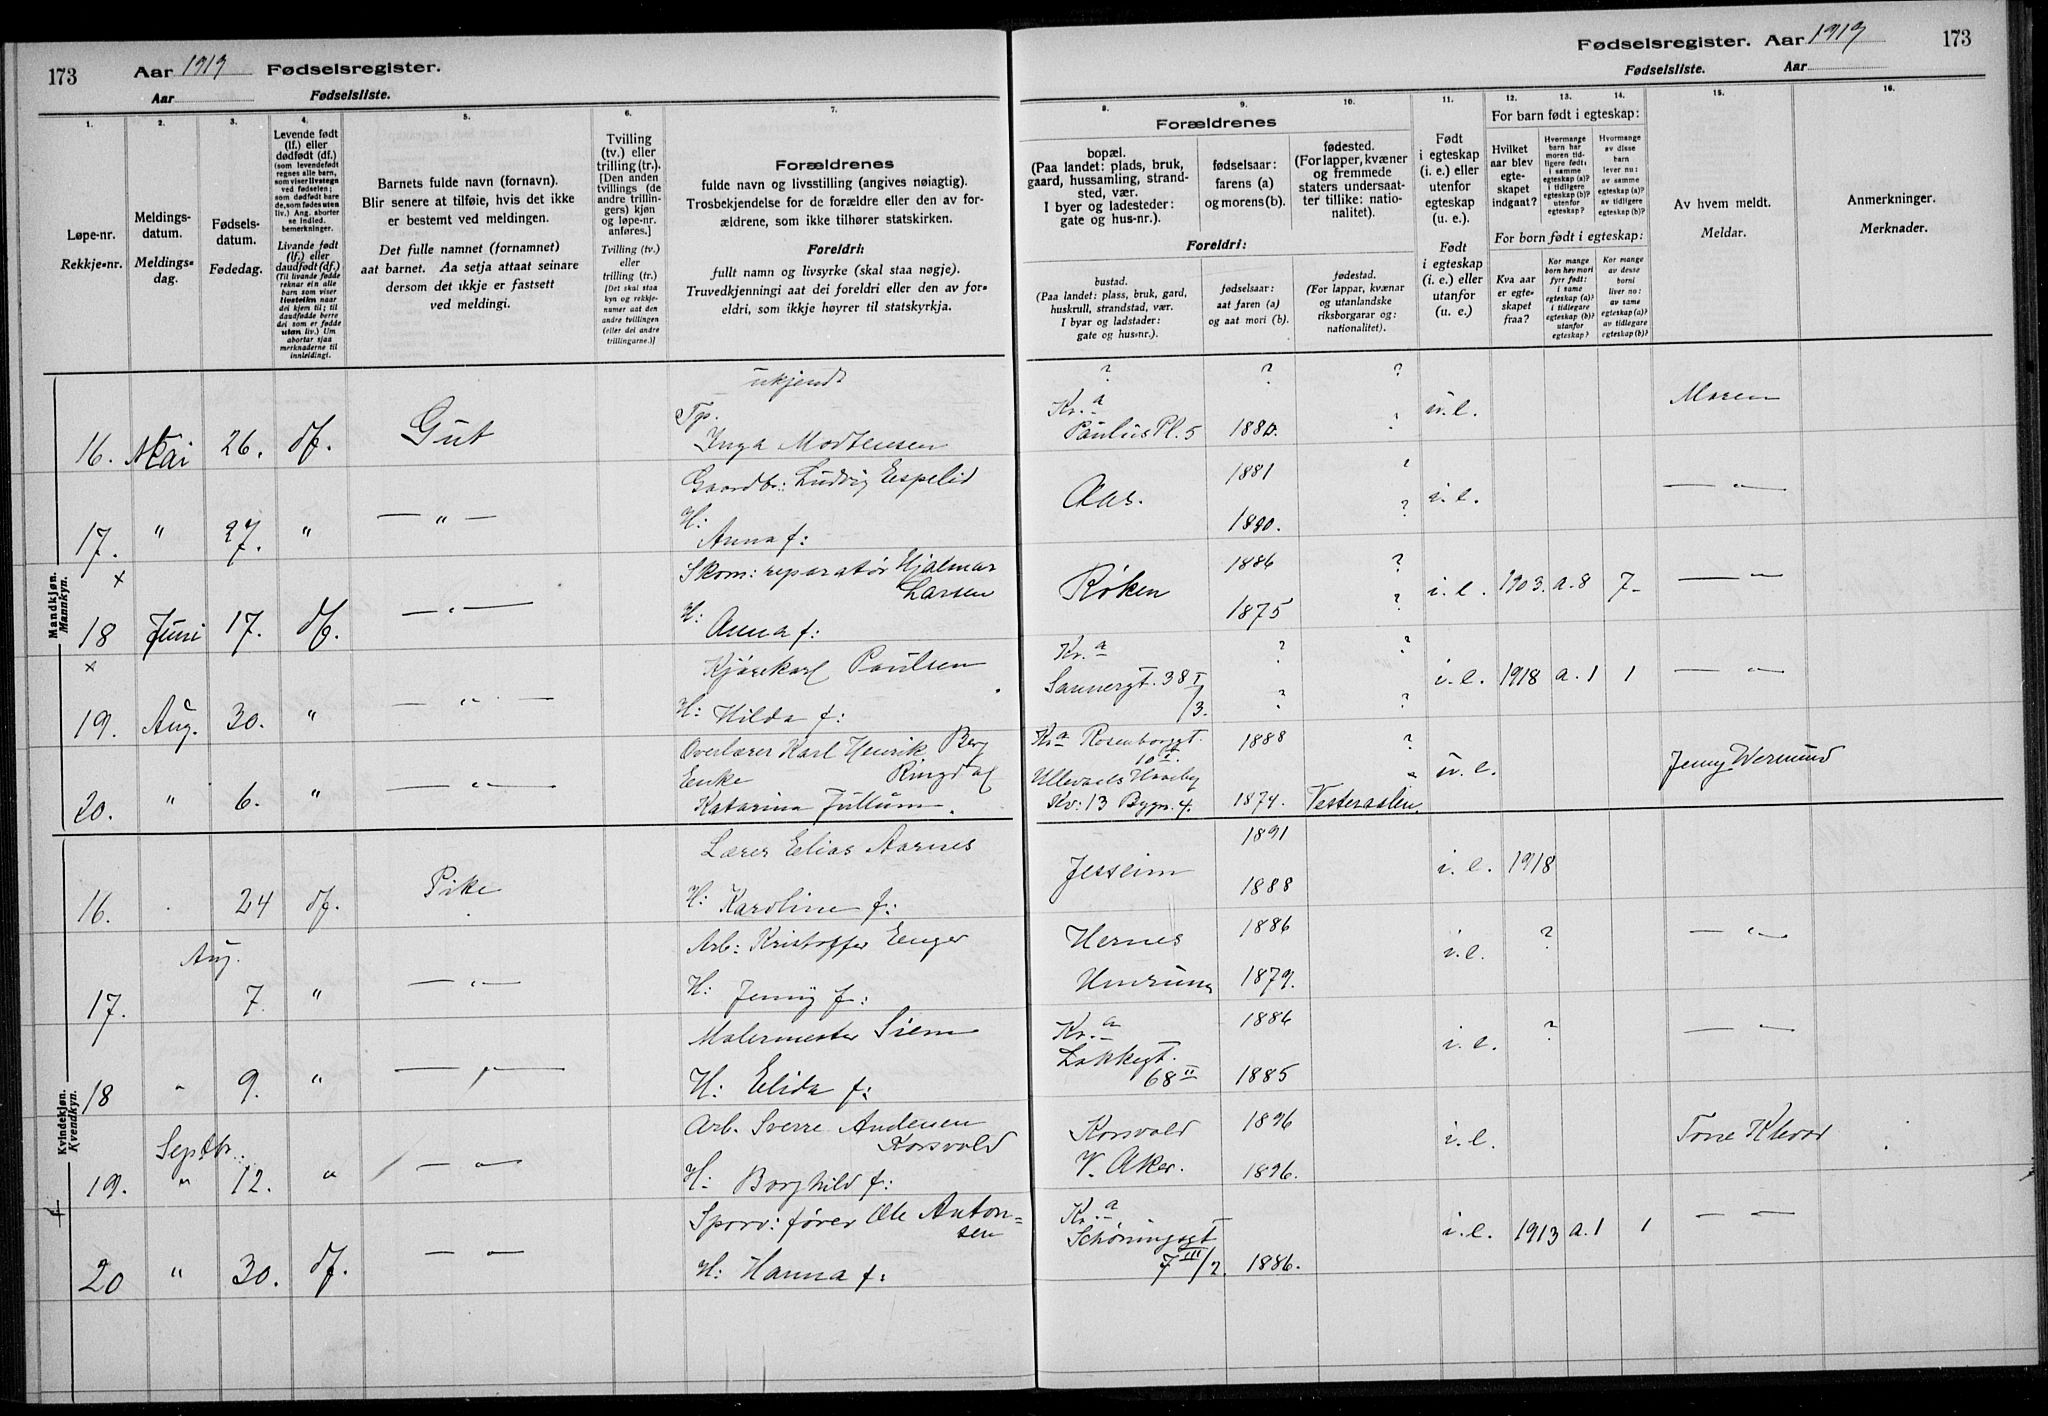 173
Aar 1919 Fødselsregister.
Aar Fødselsliste.
1.
Løpe-nr.
Rekkje-nr.
2.
Meldings-
datum.
Meldings-
dag.
3.
Fødsels-
datum.
Fødedag.
4.
Levende født
(lf.) eller
dødfødt (df.)
(som levendefødt
regnes alle barn,
som viser livstegn
ved fødselen;
som dødfødt bare
de, som fødes uten
liv.) Ang. aborter
se indled.
bemerkninger.
Livande født
(lf.) eller
daudfødt (df.)
(Til livande fødde
reknar ein alle
barn som viser
livsteikn naar
dei kjem til; til
daudfødde berre
dei som er fødde
utan liv.) Um
abortar sjaa
merknaderne til
innleidingi.
5.
Barnets fulde navn (fornavn).
Blir senere at tilføie, hvis det ikke
er bestemt ved meldingen.
Det fulle namnet (fornamnet)
aat barnet. Aa setja attaat seinare
dersom det ikkje er fastsett
ved meldingi.
6.
Tvilling
(tv.) eller
trilling (tr.).
[Den anden
tvillings (de
andre trillin-
gers) kjøn
og løpe-nr.
anføres.]
Tvilling (tv.)
eller
trilling (tr.)
[Det skal staa
kyn og rekkje-
numer aat den
andre tvillingen
(eller dei andre
trillingarne.)]
7.
Forældrenes
fulde navn og livsstilling (angives nøiagtig).
Trosbekjendelse for de forældre eller den av for-
ældrene, som ikke tilhører statskirken.
Foreldri:
fullt namn og livsyrke (skal staa nøgje).
Truvedkjenningi aat dei foreldri eller den av for-
eldri, som ikkje høyrer til statskyrkja.
Fødselsregister. Aar 1919 173
Fødselsliste. Aar
8.
Forældrenes
bopæl.
(Paa landet: plads, bruk,
gaard, hussamling, strand-
sted, vær.
I byer og ladesteder:
gate og hus-nr.).
9.
fødselsaar:
farens (a)
og morens (b).
10.
fødested.
(For lapper, kvæner
og fremmede
staters undersaat-
ter tillike: natio-
nalitet).
Foreldri:
bustad.
(Paa landet: plass, bruk, gard,
huskrull, strandstad, vær.
I byar og ladstader:
gate og hus-nr.).
fødselsaar:
aat faren (a)
og aat mori (b).
fødestad.
(For lappar, kvænar
og utanlandske
riksborgarar og:
nationalitet).
11.
Født
i egteskap
(i. e.) eller
utenfor
egteskap
(u. e.).
Født
i egteskap
(i. e.) eller
utanfor
(u. e.)
12. 13. 14.
For barn født i egteskap:
Hvilket
aar blev
egte-
skapet
indgaat?
Hvormange
barn har
moren tid-
ligere født:
i samme
egteskap (a)?
i tidligere
egteskap (b)?
utenfor
egteskap?
Hvormange
av disse
barn
lever nu:
av samme
egteskap (a)?
av tidligere
egteskap (b)?
For born født i egteskap:
Kva aar
er egte-
skapet
fraa?
Kor mange
born hev mori
fyrr født:
i same
egteskap (a)?
i tidlegare
egteskap (b)?
utanfor
egteskap?
Kor mange
av desse
borni
liver no:
av same
egteskap (a)?
av tidlegare
egteskap (b)?
15.
Av hvem meldt.
Meldar.
16.
Anmerkninger.
Merknader.
Mandkjøn.
Mannkyn.
ukjendt ? ? ?
16. Mai 26. df. Gut Fp. Inga Mortensen Kr.a Paulus Pl. 5 1880. ? u. e. Moren
Gaardbr: Ludvig Espelid 1881 ?
17. " 27. " — " — H: Anna f: Aas. 1890. ? i. e. — " —
x Skom: reparatør Hjalmar Larsen 1886 ?
18 Juni 17. df. — " — H: Anna f: Røken 1875 ? i. e. 1903. a. 8 7- — " —
x Kjørekarl Paulsen Kr.a ? ?
19. Aug. 30. " — " — H: Hilda f: Sannergt. 38 I/3. ? ? i. e. 1918 a. 1 1 — " —
Overlærer Karl Henrik Berg Ringdal Kr.a Rosenborggt. 10 1888 ?
20. " 6. " — " — Enke Katarina Jullum. Ullevaals Haveby Kv: 13 Bygn. 4. 1874. Vesteraalen. u. e. Jenny Wermund
Kvindekjøn.
Kvendkyn.
Lærer Elias Aarnes 1891
16. 24 df. Pike H: Karoline f: Jessheim 1888 i. e. 1918
Aug. Arb: Kristoffer Enger Hernes 1886 ?
17. 7. " — " — H: Jenny f: 1879. i. e. — " —
Malermester Siem Kr.a 1886 ?
18 " 9. " — " — H: Elida f: Løkkegt. 68 II 1885 i. e. — " —
Septbr. Arb. Sverre Andersen Korsvold Korsvold 1896
19. " 12. " — " — H: Borghild f: V. Aker. 1896. i. e. Tone
Sporv: fører Ole Antonsen Kr.a
20 " 30. df. — " — H: Hanna f: Schøningsgt 7 III/2. 1886. i. e. 1913 a. 1 1 — " —